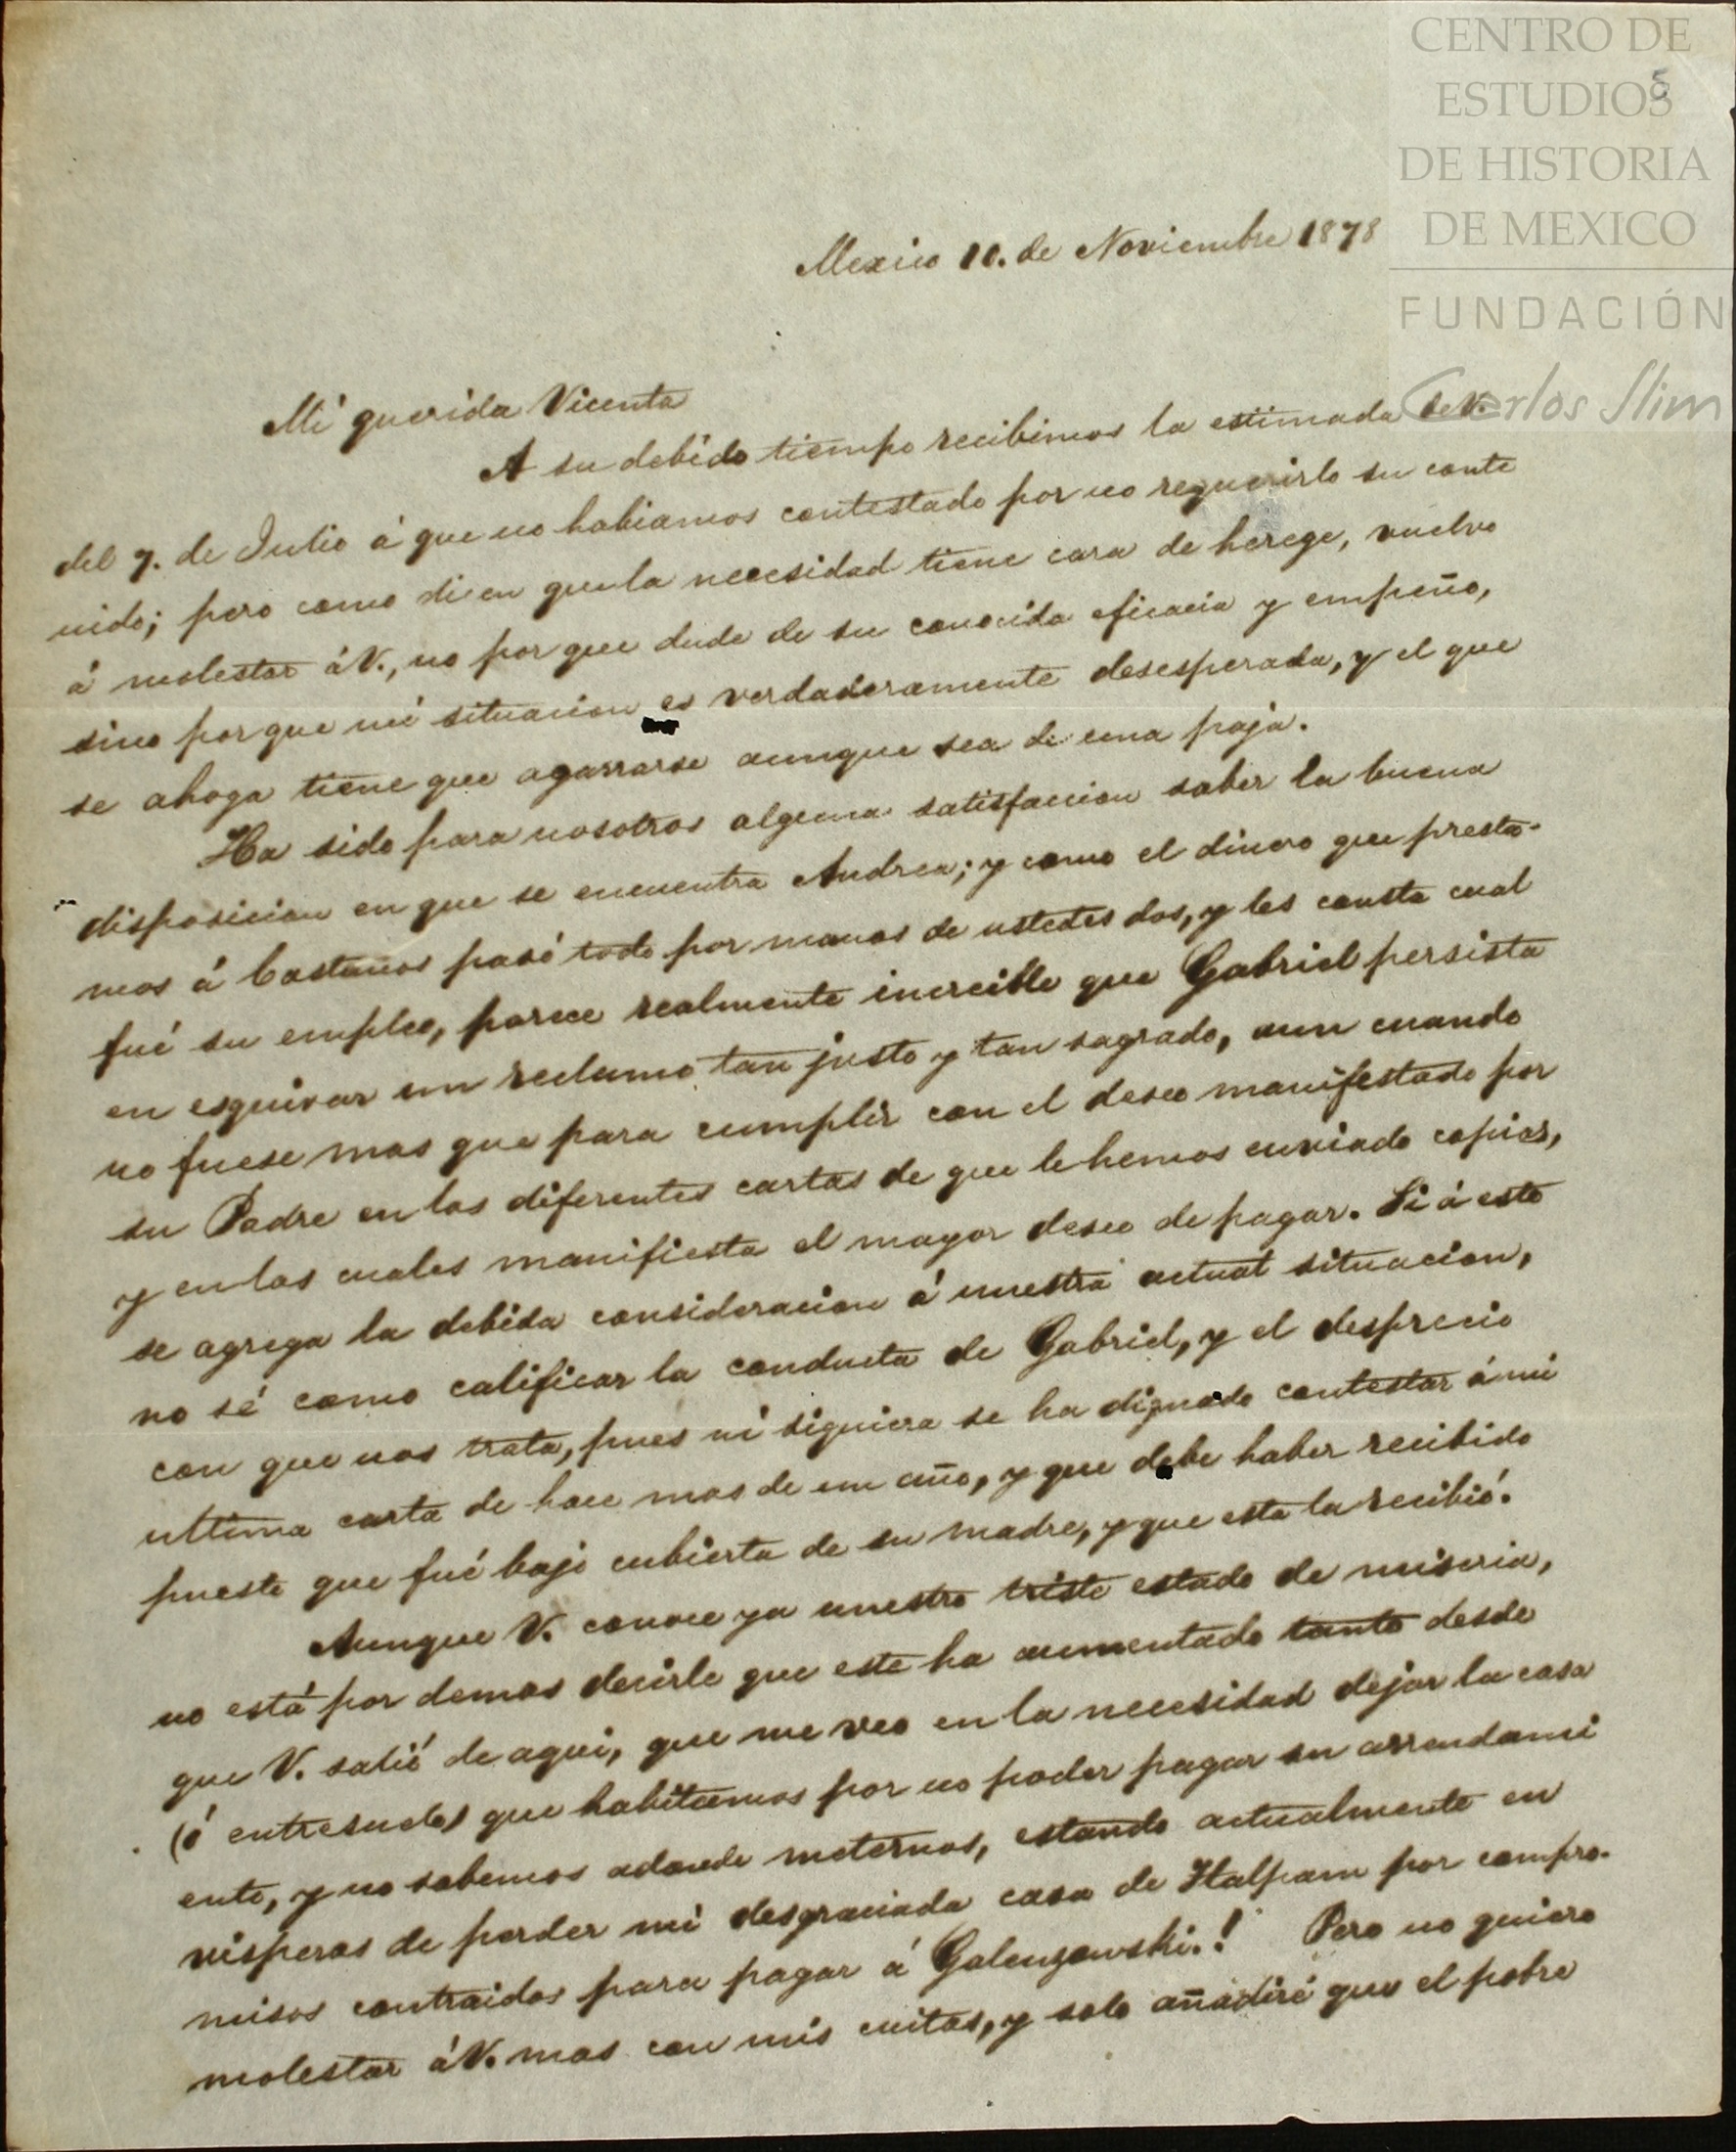 CENTRO DE
ESTUDIOS
5
DE HISTORIA
DE MEXICO
FUNDACIÓN
Carlos Slim
Mexico 10. de Noviembre 1878
Mi querida Vicenta
A su debido tiempo recibimos la estimada de V.
del 7. de Julio á que no habiamos contestado por no requerirlo su conte
nido; pero como dicen que la necesidad tiene cara de herege, vuelvo
á molestar á V., no por que dude de su conocida eficacia y empeño,
sino por que mi situacion es verdaderamente desesperada, y el que
se ahoga tiene que agarrarse aunque sea de una paja.
Ha sido para nosotros alguna satisfaccion saber la buena
disposicion en que se encuentra Andrea; y como el dinero que presta-
mos á Castaños pasó todo por manos de ustedes dos, y les consta cual
fué su empleo, parece realmente increible que Gabriel persista
en esquivar un reclamo tan justo y tan sagrado, aun cuando
no fuese mas que para cumplir con el deseo manifestado por
su Padre en las diferentes cartas de que le hemos enviado copias,
y en las cuales manifiesta el mayor deseo de pagar. Si á esto
se agrega la debida consideracion á nuestra actual situacion,
no sé como calificar la conducta de Gabriel, y el desprecio
con que nos trata, pues ni siquiera se ha dignado contestar á mi
ultima carta de hace mas de un año, y que debe haber recibido
puesto que fué bajo cubierta de su madre, y que esta la recibió.
Aunque V. conoce ya nuestro triste estado de miseria,
no está por demas decirle que este ha aumentado tanto desde
que V. salió de aqui, que me veo en la necesidad dejar la casa
(ó entresuelo) que habitamos por no poder pagar su arrendami
ento, y no sabemos adonde meternos, estando actualmente en
visperas de perder mi desgraciada casa de Tlalpam por compro-
misos contraidos para pagar á Galenzowski.! Pero no quiero
molestar á V. mas con mis cuitas, y solo añadiré que el pobre